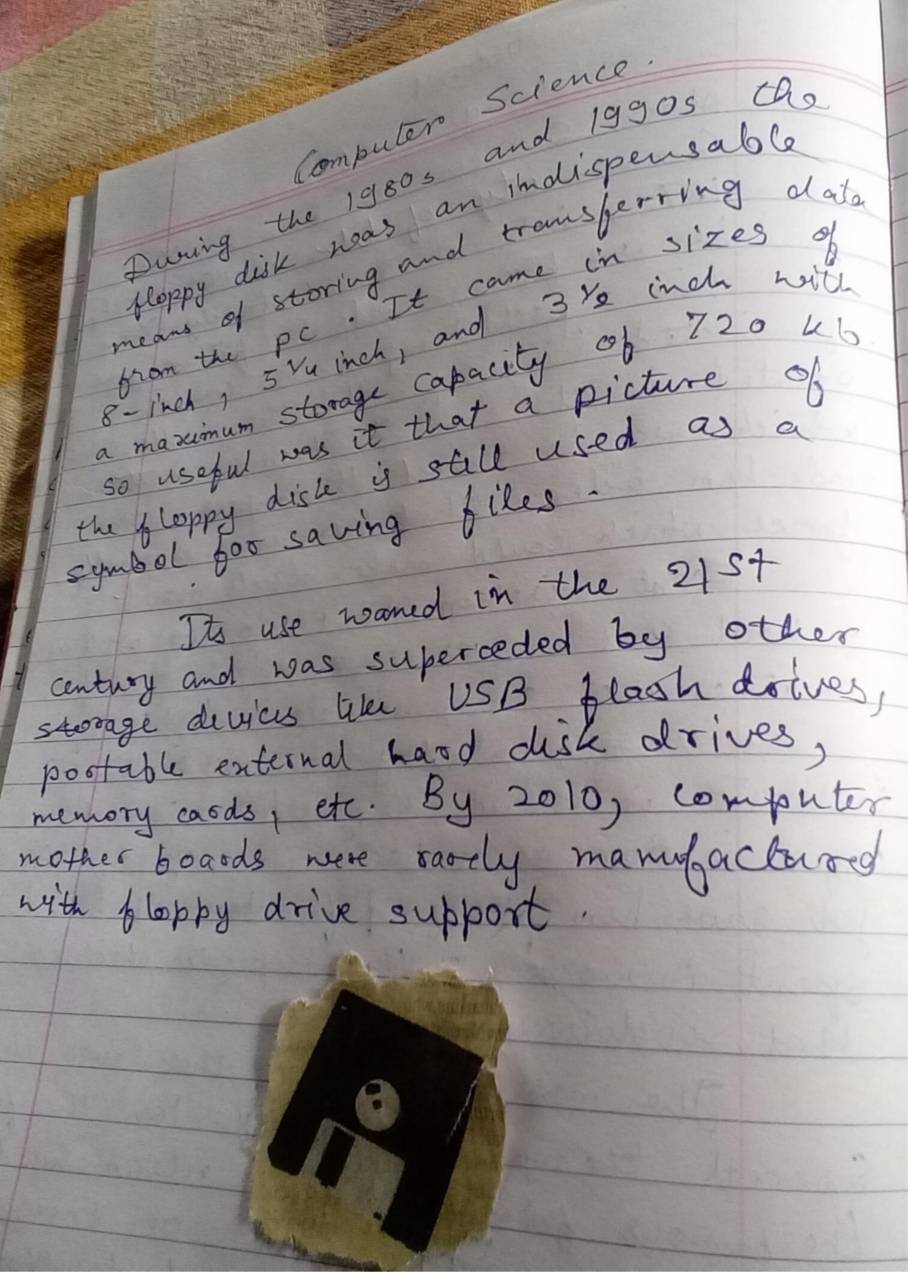 Computer Science.
During the 1980s and 1990s the
floppy disk was an indispensable
means of storing and transferring data
from the pc. It came in sizes of
8-inch, 5 1/4 inch, and 3 1/2 inch with
a maximum storage capacity of 720 kb.
so useful was it that a picture of
the floppy disk is still used as a
symbol for saving files.
Its use waned in the 21st
century and was superceded by other
storage devices like USB flash drives,
portable external hard disk drives,
memory cards, etc. By 2010, computer
mother boards were rarely manufactured
with floppy drive support.